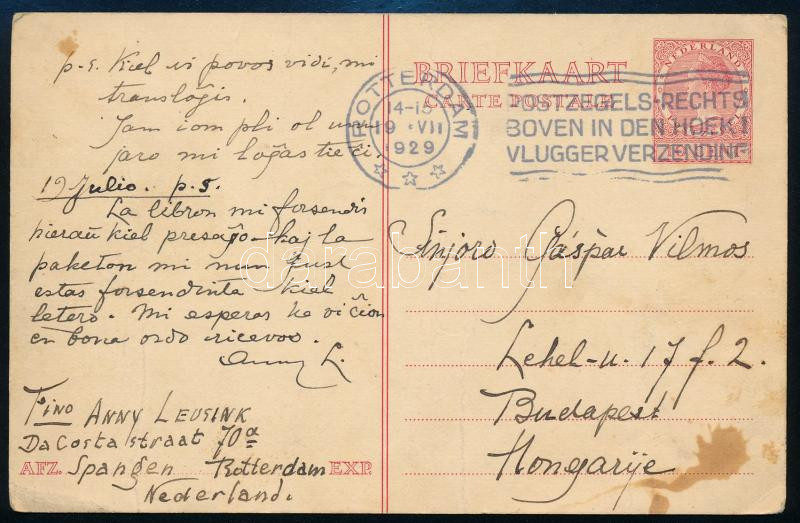 p.s. Kiel vi povos vidi, mi
translogis.
Jam iom pli ol unu
jaro mi loĝas tie ĉi.
19 Julio. p.s.
La libron mi forsendis
hieraŭ kiel presaĵo kaj la
paketon mi nun ĵust
estas forsendinta kiel
letero. Mi esperas ke vi ĉion
en bona ordo ricevos.
Anny L.
Fino ANNY LEUSINK
Da Costastraat 70a
AFZ. Spangen Rotterdam EXP.
Nederland.
BRIEFKAART
CARTE POSTALE
NEDERLAND
ROTTERDAM
14-15
19 VII
1929
POSTZEGELS-RECHTS
BOVEN IN DEN HOEK!
VLUGGER VERZENDING
Sinjoro Gáspár Vilmos
Lehel-u. 17 f. 2.
Budapest
Hongarije
darabanth